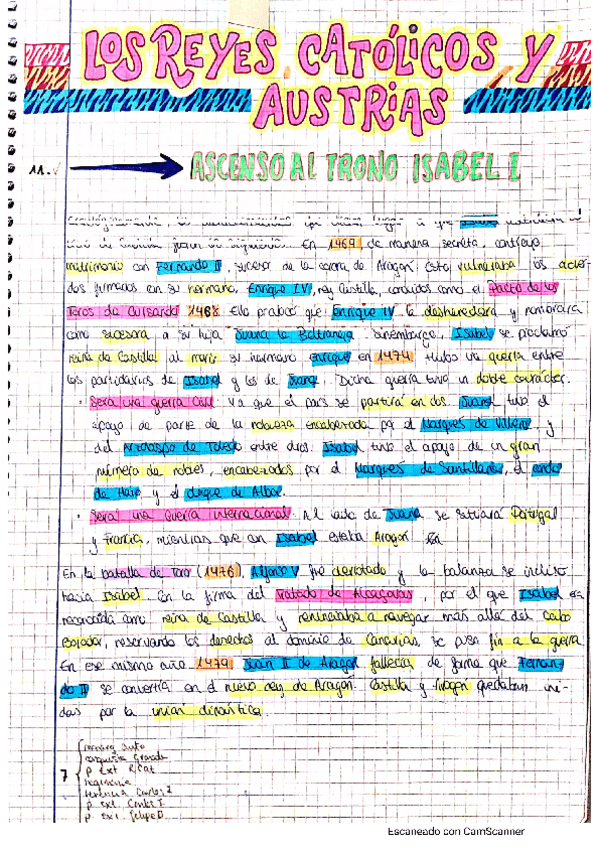 LOS REYES CATÓLICOS Y
AUSTRIAS
11.
ASCENSO AL TRONO ISABEL I
trono de Castilla fueron los siguientes. En 1469, de manera secreta, contrajo
matrimonio con Fernando II, sucesor de la corona de Aragón, esto vulneraba los acuer-
dos firmados con su hermano, Enrique IV, rey Castilla, conocidos como el Pacto de los
Toros de Guisando 1468. Ello provocó que Enrique IV la desheredara y nombrara
como sucesora a su hija Juana la Beltraneja. Sinembargo, Isabel se proclamó
reina de Castilla al morir su hermano Enrique en 1474. Hubo una guerra entre
los partidarios de Isabel y los de Juana. Dicha guerra tuvo un doble carácter.
· Será una guerra Civil ya que el país se partirá en dos. Juana tuvo el
apoyo de parte de la nobleza encabezada por el Marqués de Villena y
del Arzobispo de Toledo entre otros. Isabel tuvo el apoyo de un gran
número de nobles, encabezados por el Marqués de Santillana, el conde
de Haro y el duque de Alba.
· Será una guerra internacional. Al lado de Juana se situará Portugal
y Francia, mientras que con Isabel estaba Aragón.
En la batalla de Toro (1476) Alfonso V fue derrotado y la balanza se inclinó
hacia Isabel. Con la firma del Tratado de Alcaçovas, por el que Isabel era
reconocida como reina de Castilla y renunciaba a navegar más allá del cabo
Bojador, reservando los derechos al dominio de Canarias, se puso fin a la guerra.
En ese mismo año 1479 Juan II de Aragón fallecía de forma que Fernan-
do II se convertía en el nuevo rey de Aragón. Castilla y Aragón quedaban uni-
das por la unión dinástica.
7
conquista Granada
p ext R.Cat
herencia Carlos I
p. ext Carlos I
p. ext Felipe II
Escaneado con CamScanner